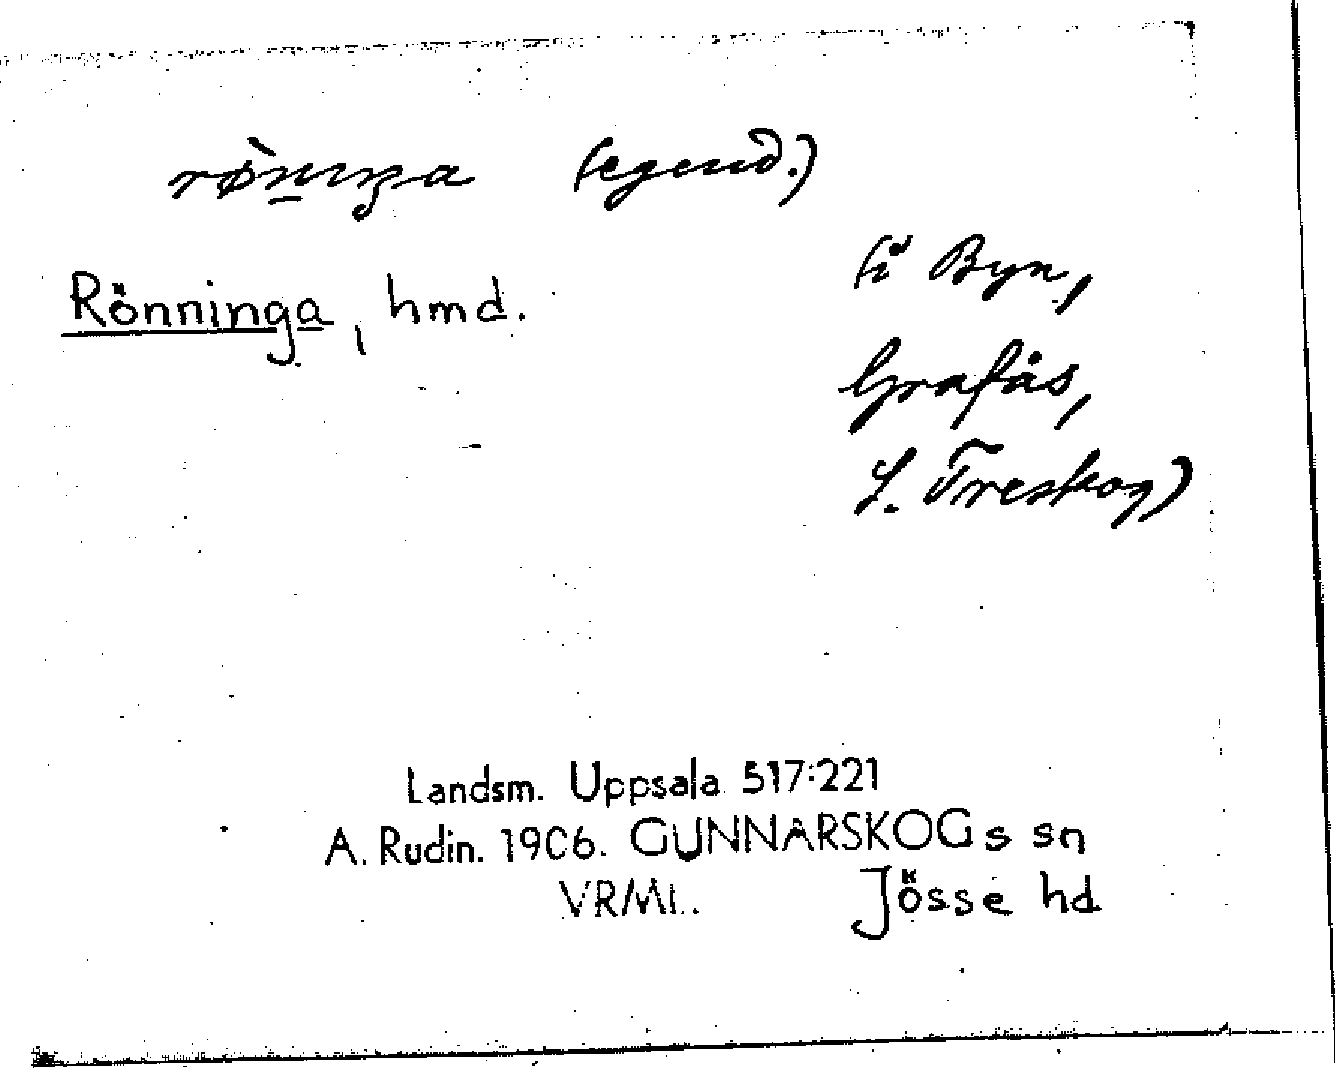 (egend.)
(i Byn,
Rönninga, hmd.
Grafås,
L. Treskog)
Landsm. Uppsala 517:221
A. Rudin. 1906. GUNNARSKOGs sn
VRML. Jösse hd